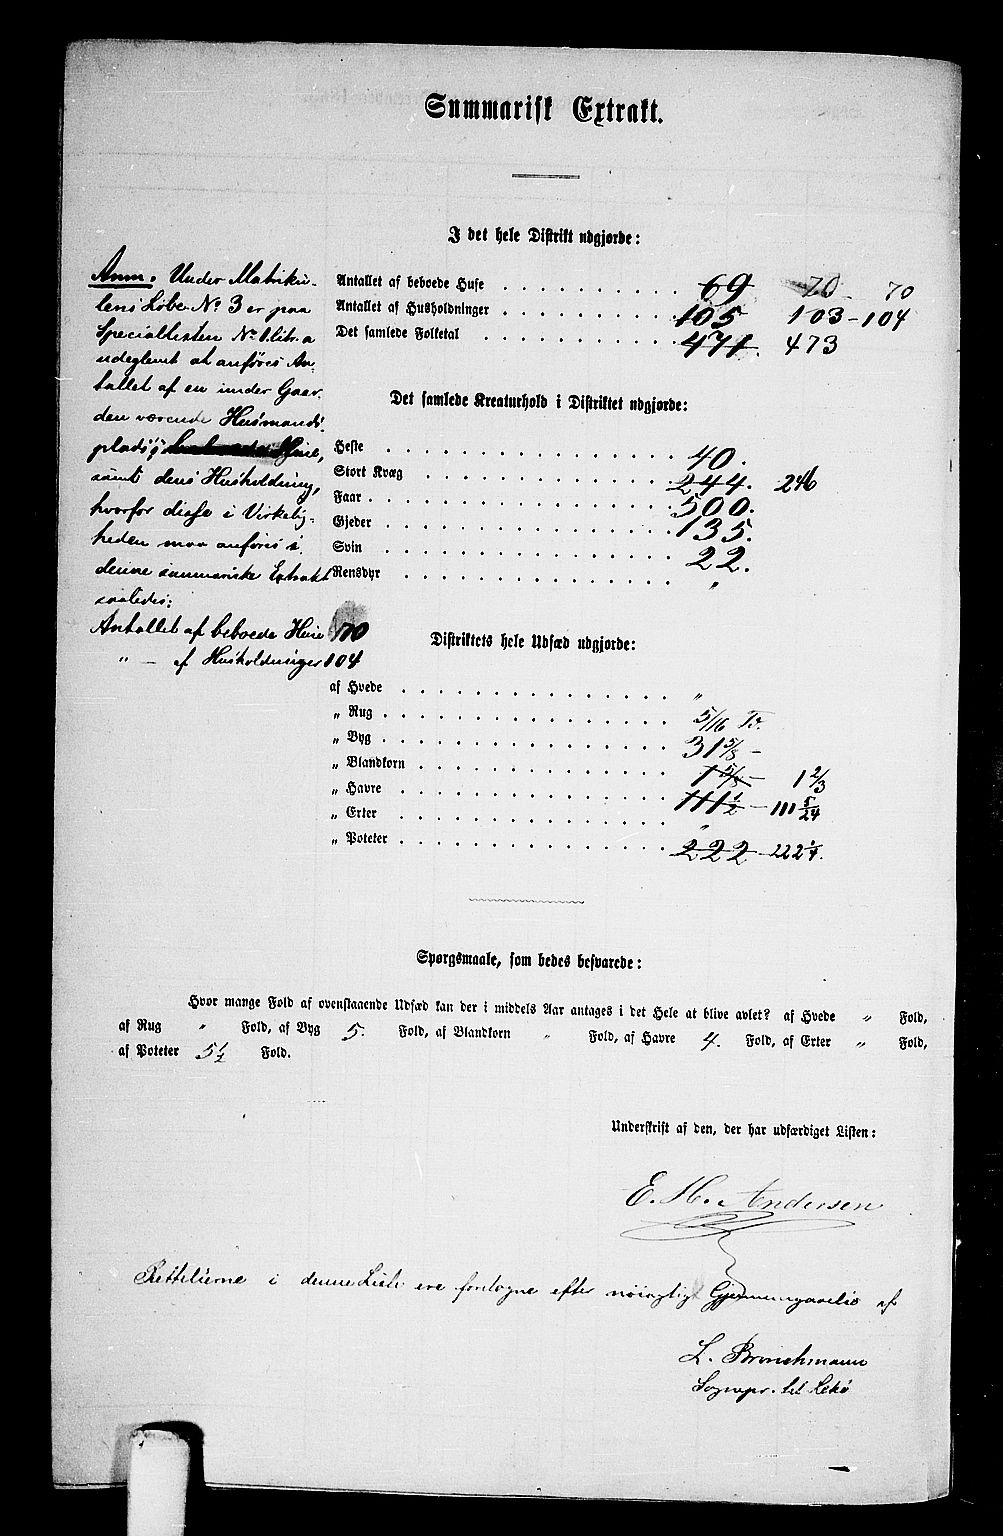 Summarisk Extrakt.
I det hele Distrikt udgjorde:
Antallet af beboede Huse 69 70 - 70
Antallet af Husholdninger 105 103 - 104
Det samlede Folketal 471. 473
Anm. Under Matriku-
lens Løbe No 3 er paa
Speciallisten No 1 litr. a
udeglemt at anføres An-
tallet af en under Gaar-
den værende Husmands-
plads's
samt dens Husholdning,
hvorfor disse i Virkelig-
heden maa anføres i
denne summariske Extrakt
saaledes:
Antallet af beboede Huse 70
" — af Husholdninger 104
Det samlede Kreaturhold i Distriktet udgjorde:
Heste 40.
Stort Kvæg 244. 246
Faar 500.
Gjeder 135.
Svin 22.
Rensdyr "
Distriktets hele Udsæd udgjorde:
af Hvede "
" Rug 5/16 Tr.
" Byg 31 5/8 -
" Blandkorn 1 5/8 - 1 2/3
" Havre 111 1/2 - 111 5/24
" Erter "
" Poteter 222 - 222 1/4.
Spørgsmaale, som bedes besvarede:
Hvor mange Fold af ovenstaaende Udsæd kan der i middels Aar antages i det Hele at blive avlet? af Hvede " Fold,
af Rug " Fold, af Byg 5. Fold, af Blandkorn " Fold, af Havre 4. Fold, af Erter " Fold,
af Poteter 5 1/2 Fold.
Underskrift af den, der har udfærdiget Listen:
E. H. Andersen
Rettelserne i denne Liste ere foretagne efter nøiagtig Gjennemgaaelse af
L. Brinchmann
Sognepr. til Lekø